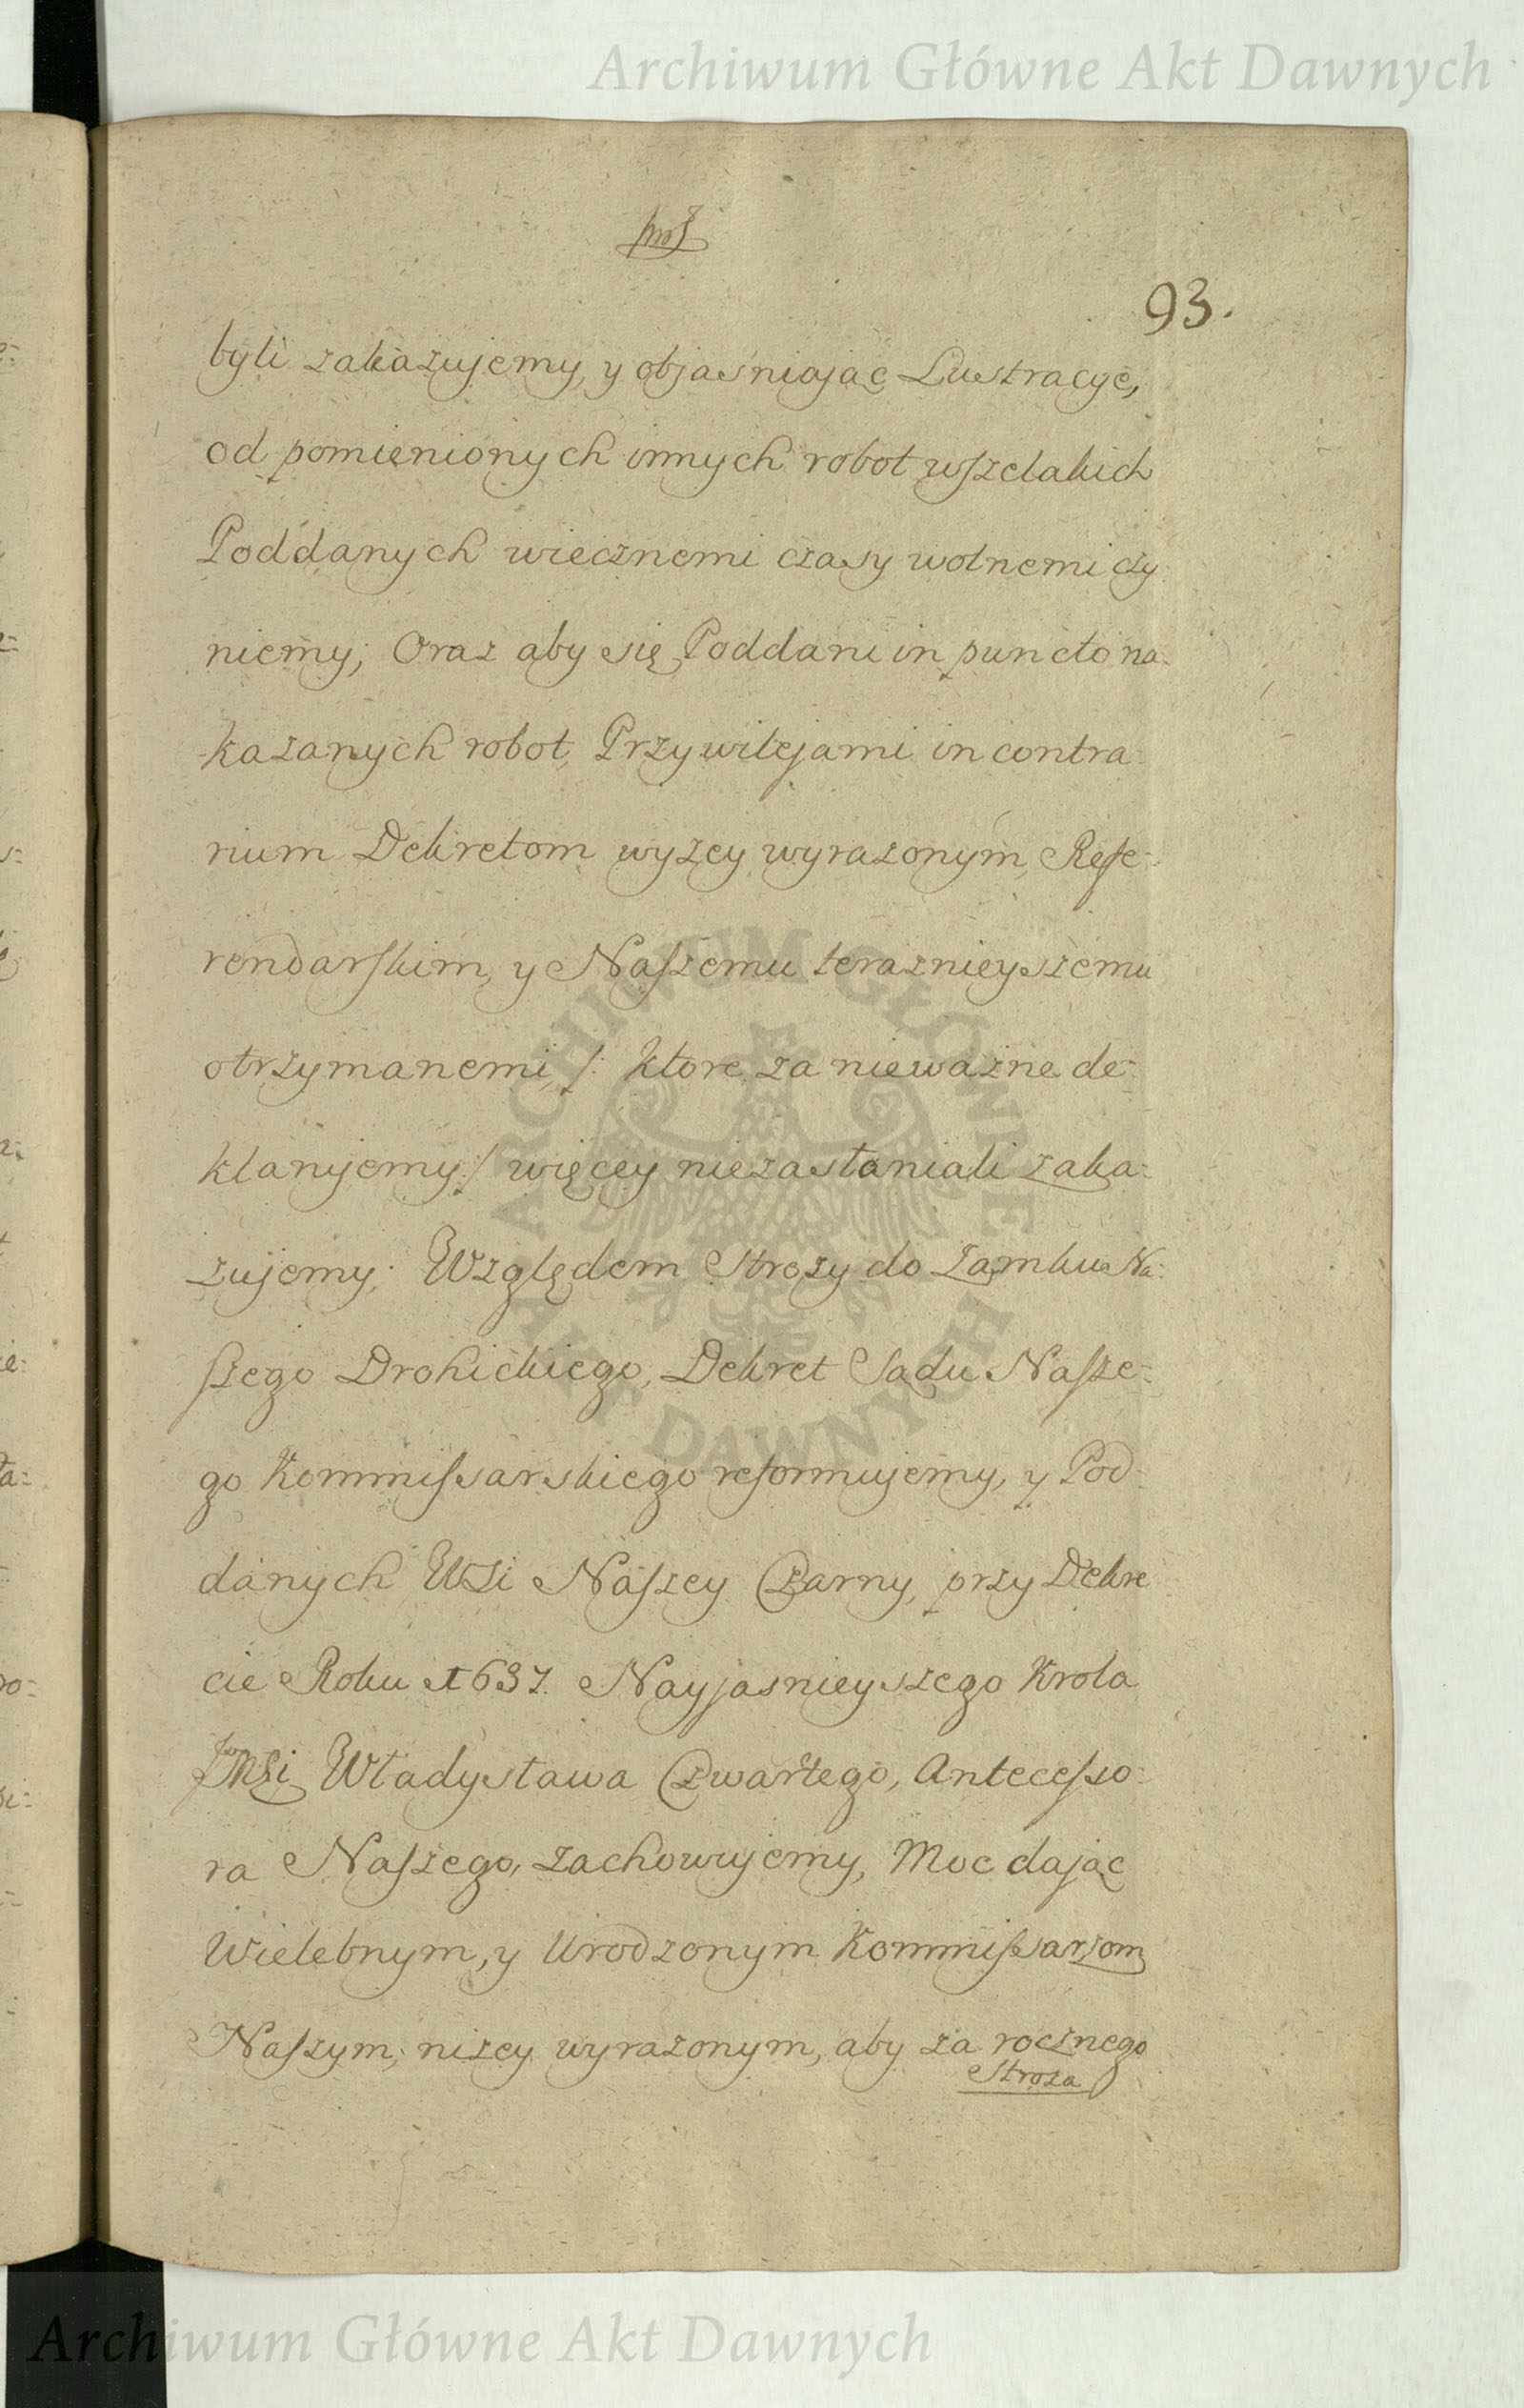 Archiwum Główne Akt Dawnych
93.
byli zakazujemy, y objaśniając Lustracyę,
od pomienionych innych robot wszelakich
Poddanych wiecznemi czasy wolnemi czy
niemy; Oraz aby się Poddani in puncto na-
kazanych robot, Przywilejami in contra-
rium Dekretom wyżey wyrażonym, Refe-
rendarskim, y Naszemu teraznieyszemu
otrzymanemi /: ktore za nieważne de-
klarujemy :/ więcey niezasłaniali zaka-
zujemy; Względem Stroży do Zamku Na-
szego Drohickiego, Dekret Sądu Nasze-
go Kommissarskiego reformujemy, y Pod-
danych Wsi Naszey Czarny, przy Dekre
cie Roku 1637. Nayjasnieyszego Krola
JMSi Władysława Czwartego, Antecesso-
ra Naszego, zachowujemy, Moc dając
Wielebnym, y Urodzonym Kommissarzom
Naszym, niżey wyrażonym, aby za rocznego
Stroża
ARCHIWUM GŁÓWNE
AKT DAWNYCH
Archiwum Główne Akt Dawnych